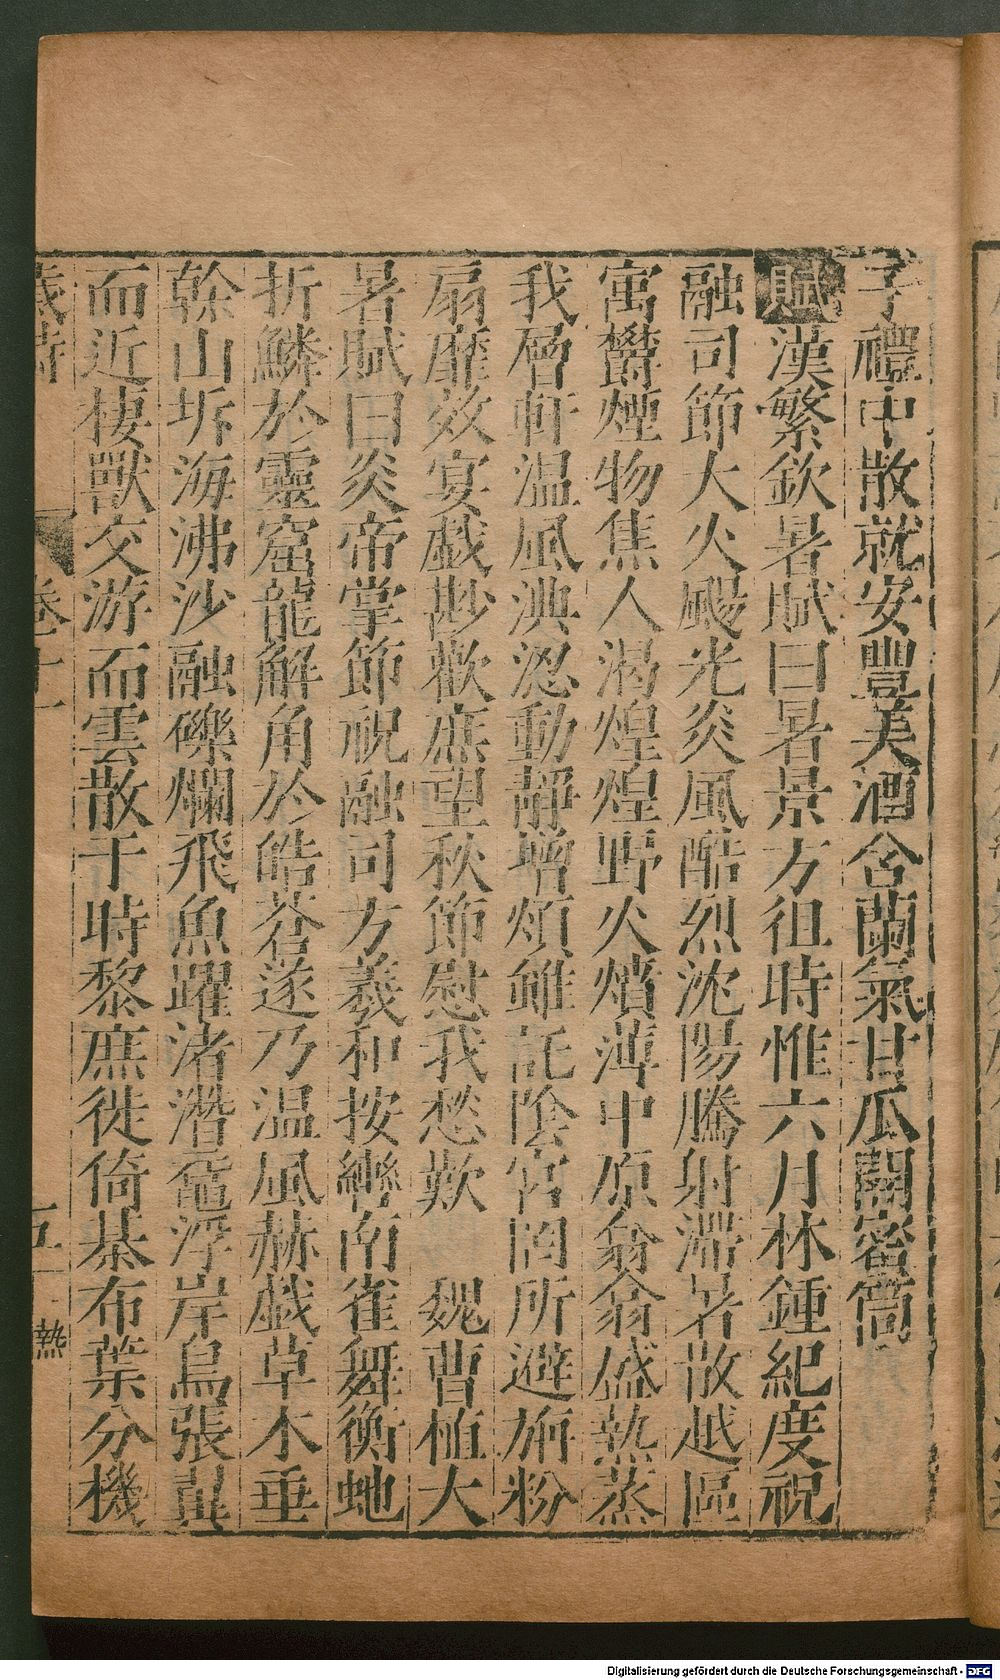 子禮中散就安豐美酒含蘭氣甘瓜開蜜筒
賦漢繁欽暑賦曰暑景方徂時惟六月林鍾紀度祝
融司節大火颺光炎風酷烈沈陽騰射滯暑散越區
寓欝煙物焦人渴煌煌野火熺薄中原翕翕盛熱蒸
我層軒温風淟涊動靜增煩雖託陰宮罔所避旃粉
扇靡效宴戯尠歡庶望秋節慰我愁歎 魏曹植大
暑賦曰炎帝掌節祝融司方羲和按轡南雀舞衡虵
折鱗於靈窟龍解角於皓蒼遂乃温風赫戯草木垂
幹山坼海沸沙融礫爛飛魚躍渚潛黿浮岸鳥張翼
而近棲獸交游而雲散于時黎庶徙倚棊布葉分機
歲時 卷十一 五 熱
Digitalisierung gefördert durch die Deutsche Forschungsgemeinschaft - DFG